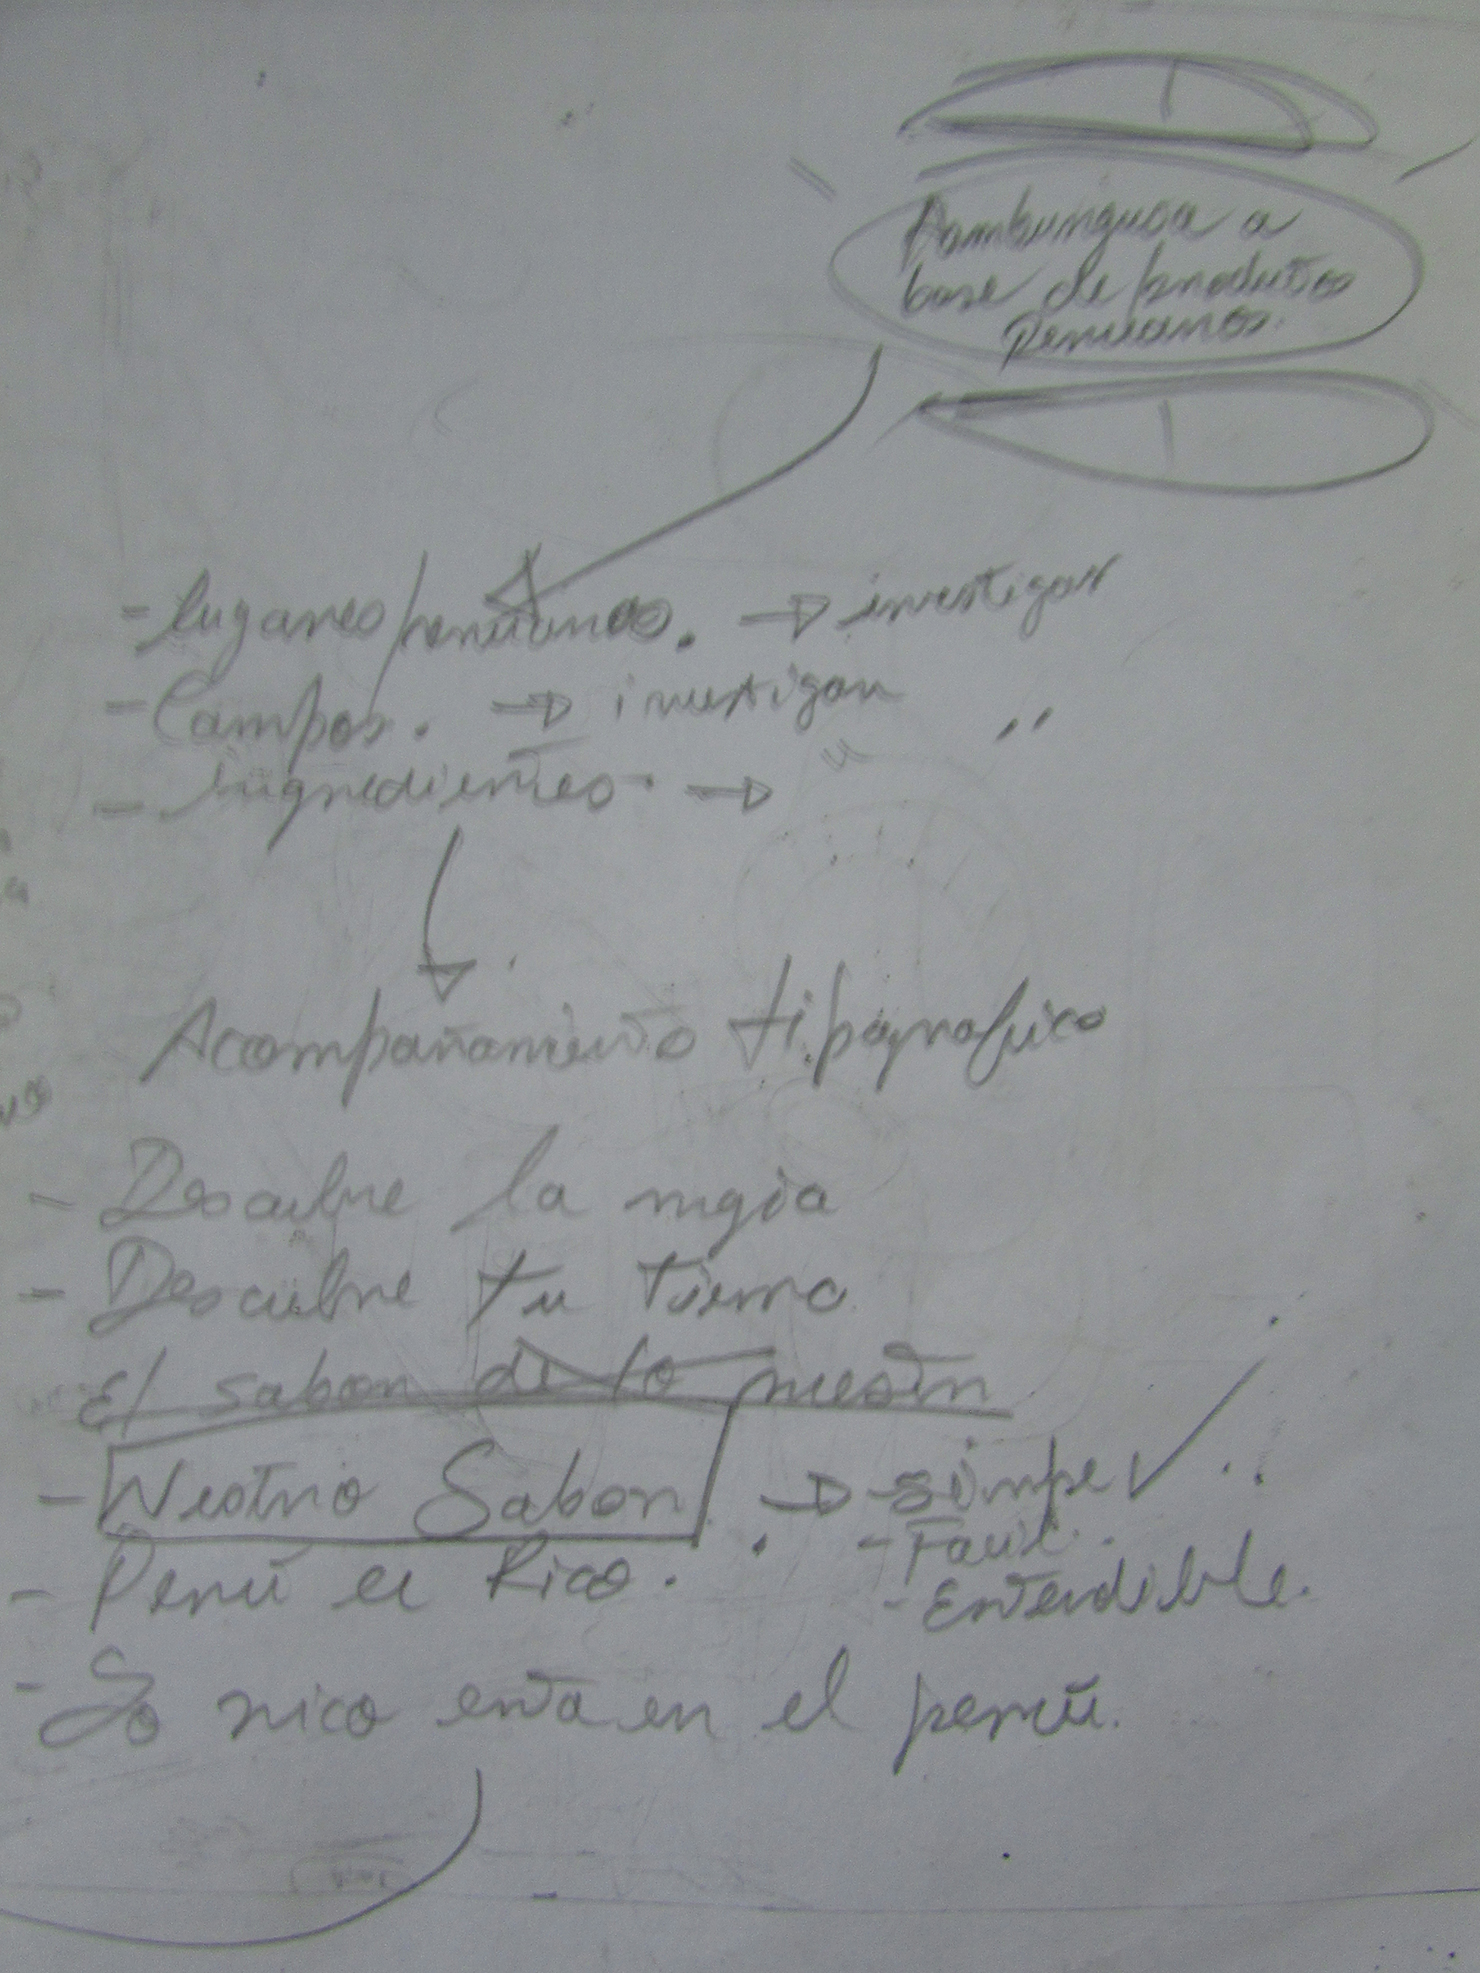 Hamburguesa a
base de productos
Peruanos.
- lugares peruanos. → investigar
- Campos. → investigar
- Ingredientes. → "
Acompañamiento tipografico
- Descubre la magia
- Descubre tu tierra
El sabor de lo nuestro
- Nestro Sabor → - simpe ✓
- Facil.
- Entendible.
- Perú es Rico.
- Lo rico esta en el perú.